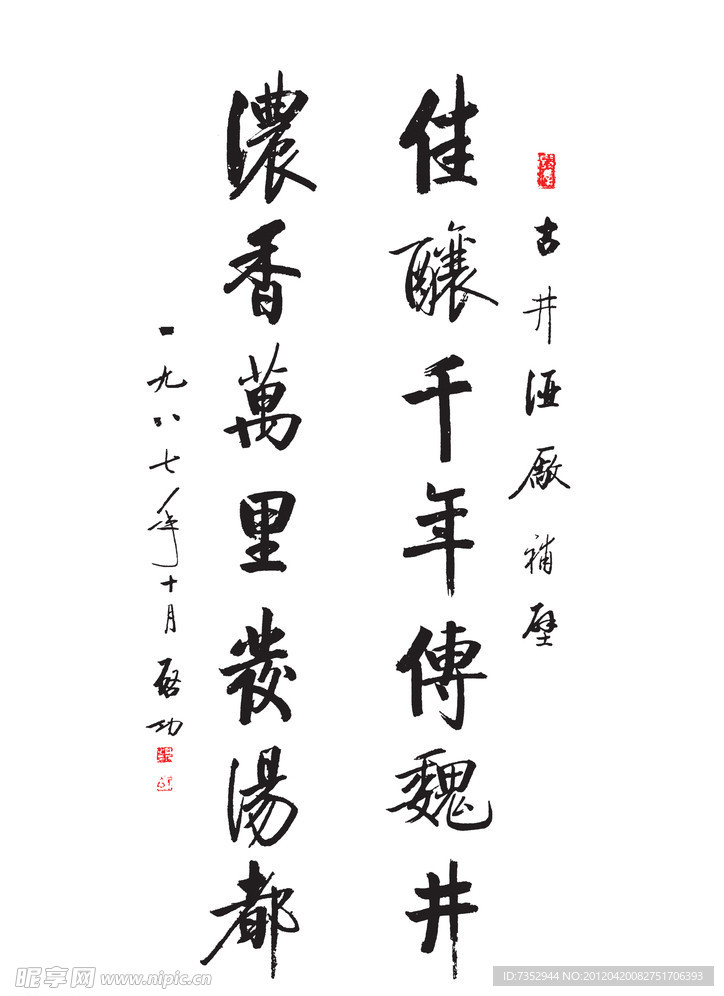 古井酒廠補壁
佳釀千年傳魏井
濃香萬里發湯都
一九八七年十月啓功
昵享网 www.nipic.cn
ID:7352944 NO:20120420082751706393